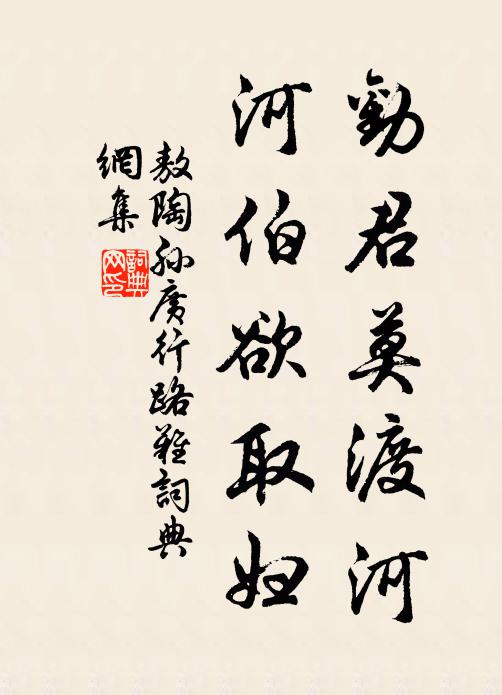 勸君莫渡河
河伯欲取妇
敖陶孙廣行路難詞典
網集
詞典
网印